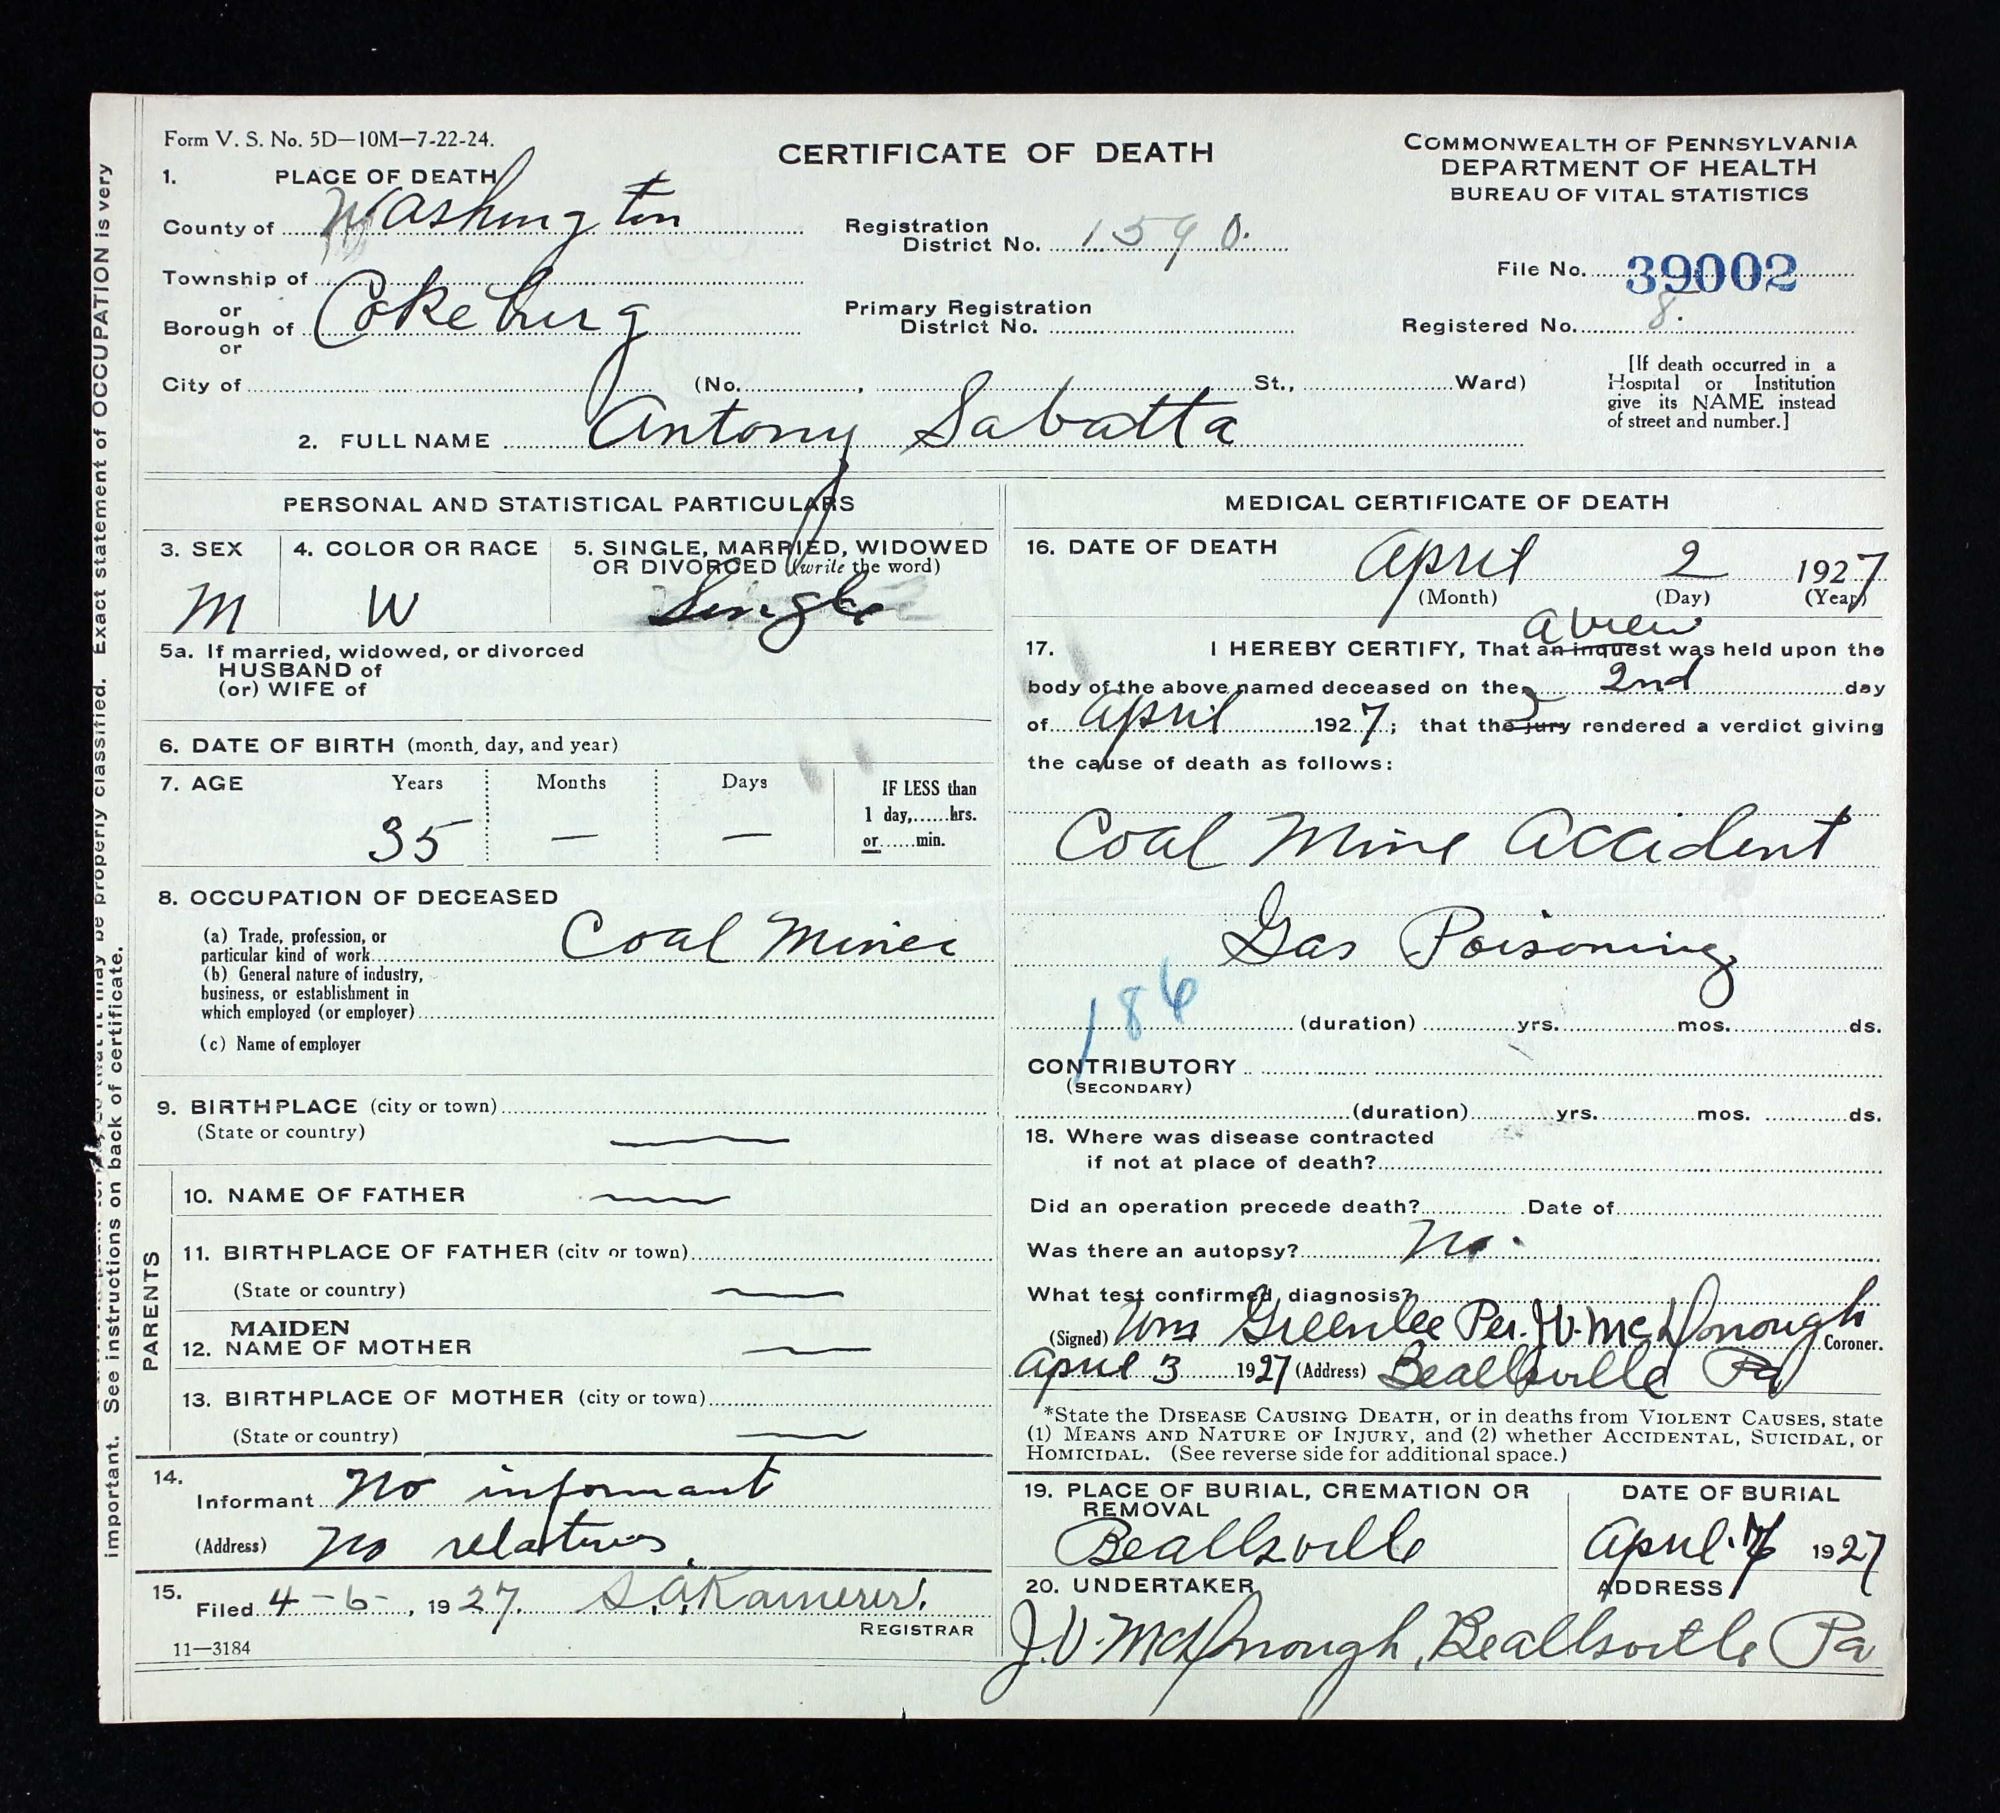 Form V. S. No. 5D—10M—7-22-24.
CERTIFICATE OF DEATH
COMMONWEALTH OF PENNSYLVANIA
DEPARTMENT OF HEALTH
BUREAU OF VITAL STATISTICS
1. PLACE OF DEATH
County of Washington
Registration District No. 1590.
File No. 39002
Township of
or
Borough of Cokeburg
or
Primary Registration District No.
Registered No. 8.
City of (No. , St., Ward)
[If death occurred in a Hospital or Institution give its NAME instead of street and number.]
2. FULL NAME Antony Sabatta
PERSONAL AND STATISTICAL PARTICULARS
3. SEX
M
4. COLOR OR RACE
W
5. SINGLE, MARRIED, WIDOWED
OR DIVORCED (write the word)
Single
5a. If married, widowed, or divorced
HUSBAND of
(or) WIFE of
6. DATE OF BIRTH (month, day, and year)
7. AGE Years Months Days
35 — —
IF LESS than
1 day,......hrs.
or......min.
8. OCCUPATION OF DECEASED
(a) Trade, profession, or
particular kind of work Coal Miner
(b) General nature of industry,
business, or establishment in
which employed (or employer)
(c) Name of employer
9. BIRTHPLACE (city or town)
(State or country) —
PARENTS
10. NAME OF FATHER —
11. BIRTHPLACE OF FATHER (city or town)
(State or country) —
MAIDEN
12. NAME OF MOTHER —
13. BIRTHPLACE OF MOTHER (city or town)
(State or country) —
14.
Informant No informant
(Address) No relatives.
15.
Filed 4-6-, 1927. S.A. Kamerer.
REGISTRAR
11—3184
MEDICAL CERTIFICATE OF DEATH
16. DATE OF DEATH April 2 1927
(Month) (Day) (Year)
a view
17. I HEREBY CERTIFY, That an inquest was held upon the
body of the above named deceased on the 2nd day
of April 1927; that the jury rendered a verdict giving
the cause of death as follows:
Coal Mine Accident
Gas Poisoning
186
(duration) yrs. mos. ds.
CONTRIBUTORY
(SECONDARY)
(duration) yrs. mos. ds.
18. Where was disease contracted
if not at place of death?
Did an operation precede death? Date of
Was there an autopsy? No.
What test confirmed diagnosis?
(Signed) Wm Greenlee Per. J.V. McDonough Coroner.
April 3 1927 (Address) Beallsville Pa
*State the DISEASE CAUSING DEATH, or in deaths from VIOLENT CAUSES, state
(1) MEANS AND NATURE OF INJURY, and (2) whether ACCIDENTAL, SUICIDAL, or
HOMICIDAL. (See reverse side for additional space.)
19. PLACE OF BURIAL, CREMATION OR
REMOVAL
Beallsville
DATE OF BURIAL
April 6 1927
20. UNDERTAKER
ADDRESS
J.V. McDonough, Beallsville Pa
Exact statement of OCCUPATION is very
may be properly classified.
important. See instructions on back of certificate.